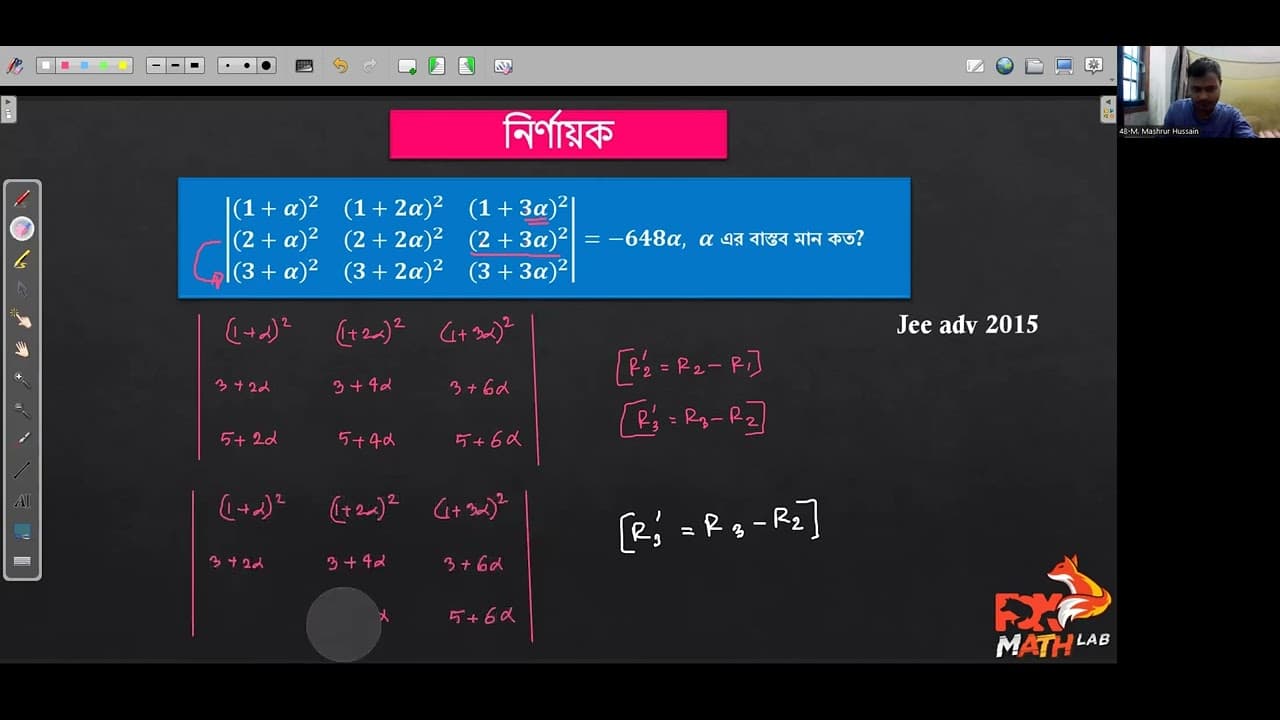 48-M. Mashrur Hussain
নির্ণায়ক
(1 + α)² (1 + 2α)² (1 + 3α)²
(2 + α)² (2 + 2α)² (2 + 3α)² = −648α, α এর বাস্তব মান কত?
(3 + α)² (3 + 2α)² (3 + 3α)²
Jee adv 2015
(1+α)² (1+2α)² (1+3α)²
3+2α 3+4α 3+6α
5+2α 5+4α 5+6α
[R₂′ = R₂ − R₁]
[R₃′ = R₃ − R₂]
(1+α)² (1+2α)² (1+3α)²
3+2α 3+4α 3+6α
α 5+6α
[R₃′ = R₃ − R₂]
FOX
MATH LAB
AI